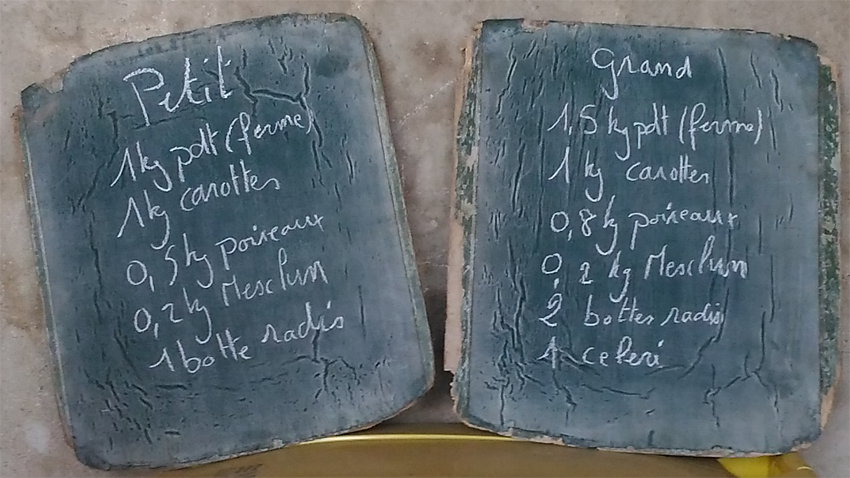 Petit
1kg pdt (ferme)
1kg carottes
0,5kg poireaux
0,2kg Mesclun
1 botte radis
Grand
1,5 kg pdt (ferme)
1 kg carottes
0,8 kg poireaux
0,2 kg Mesclun
2 bottes radis
1 celeri